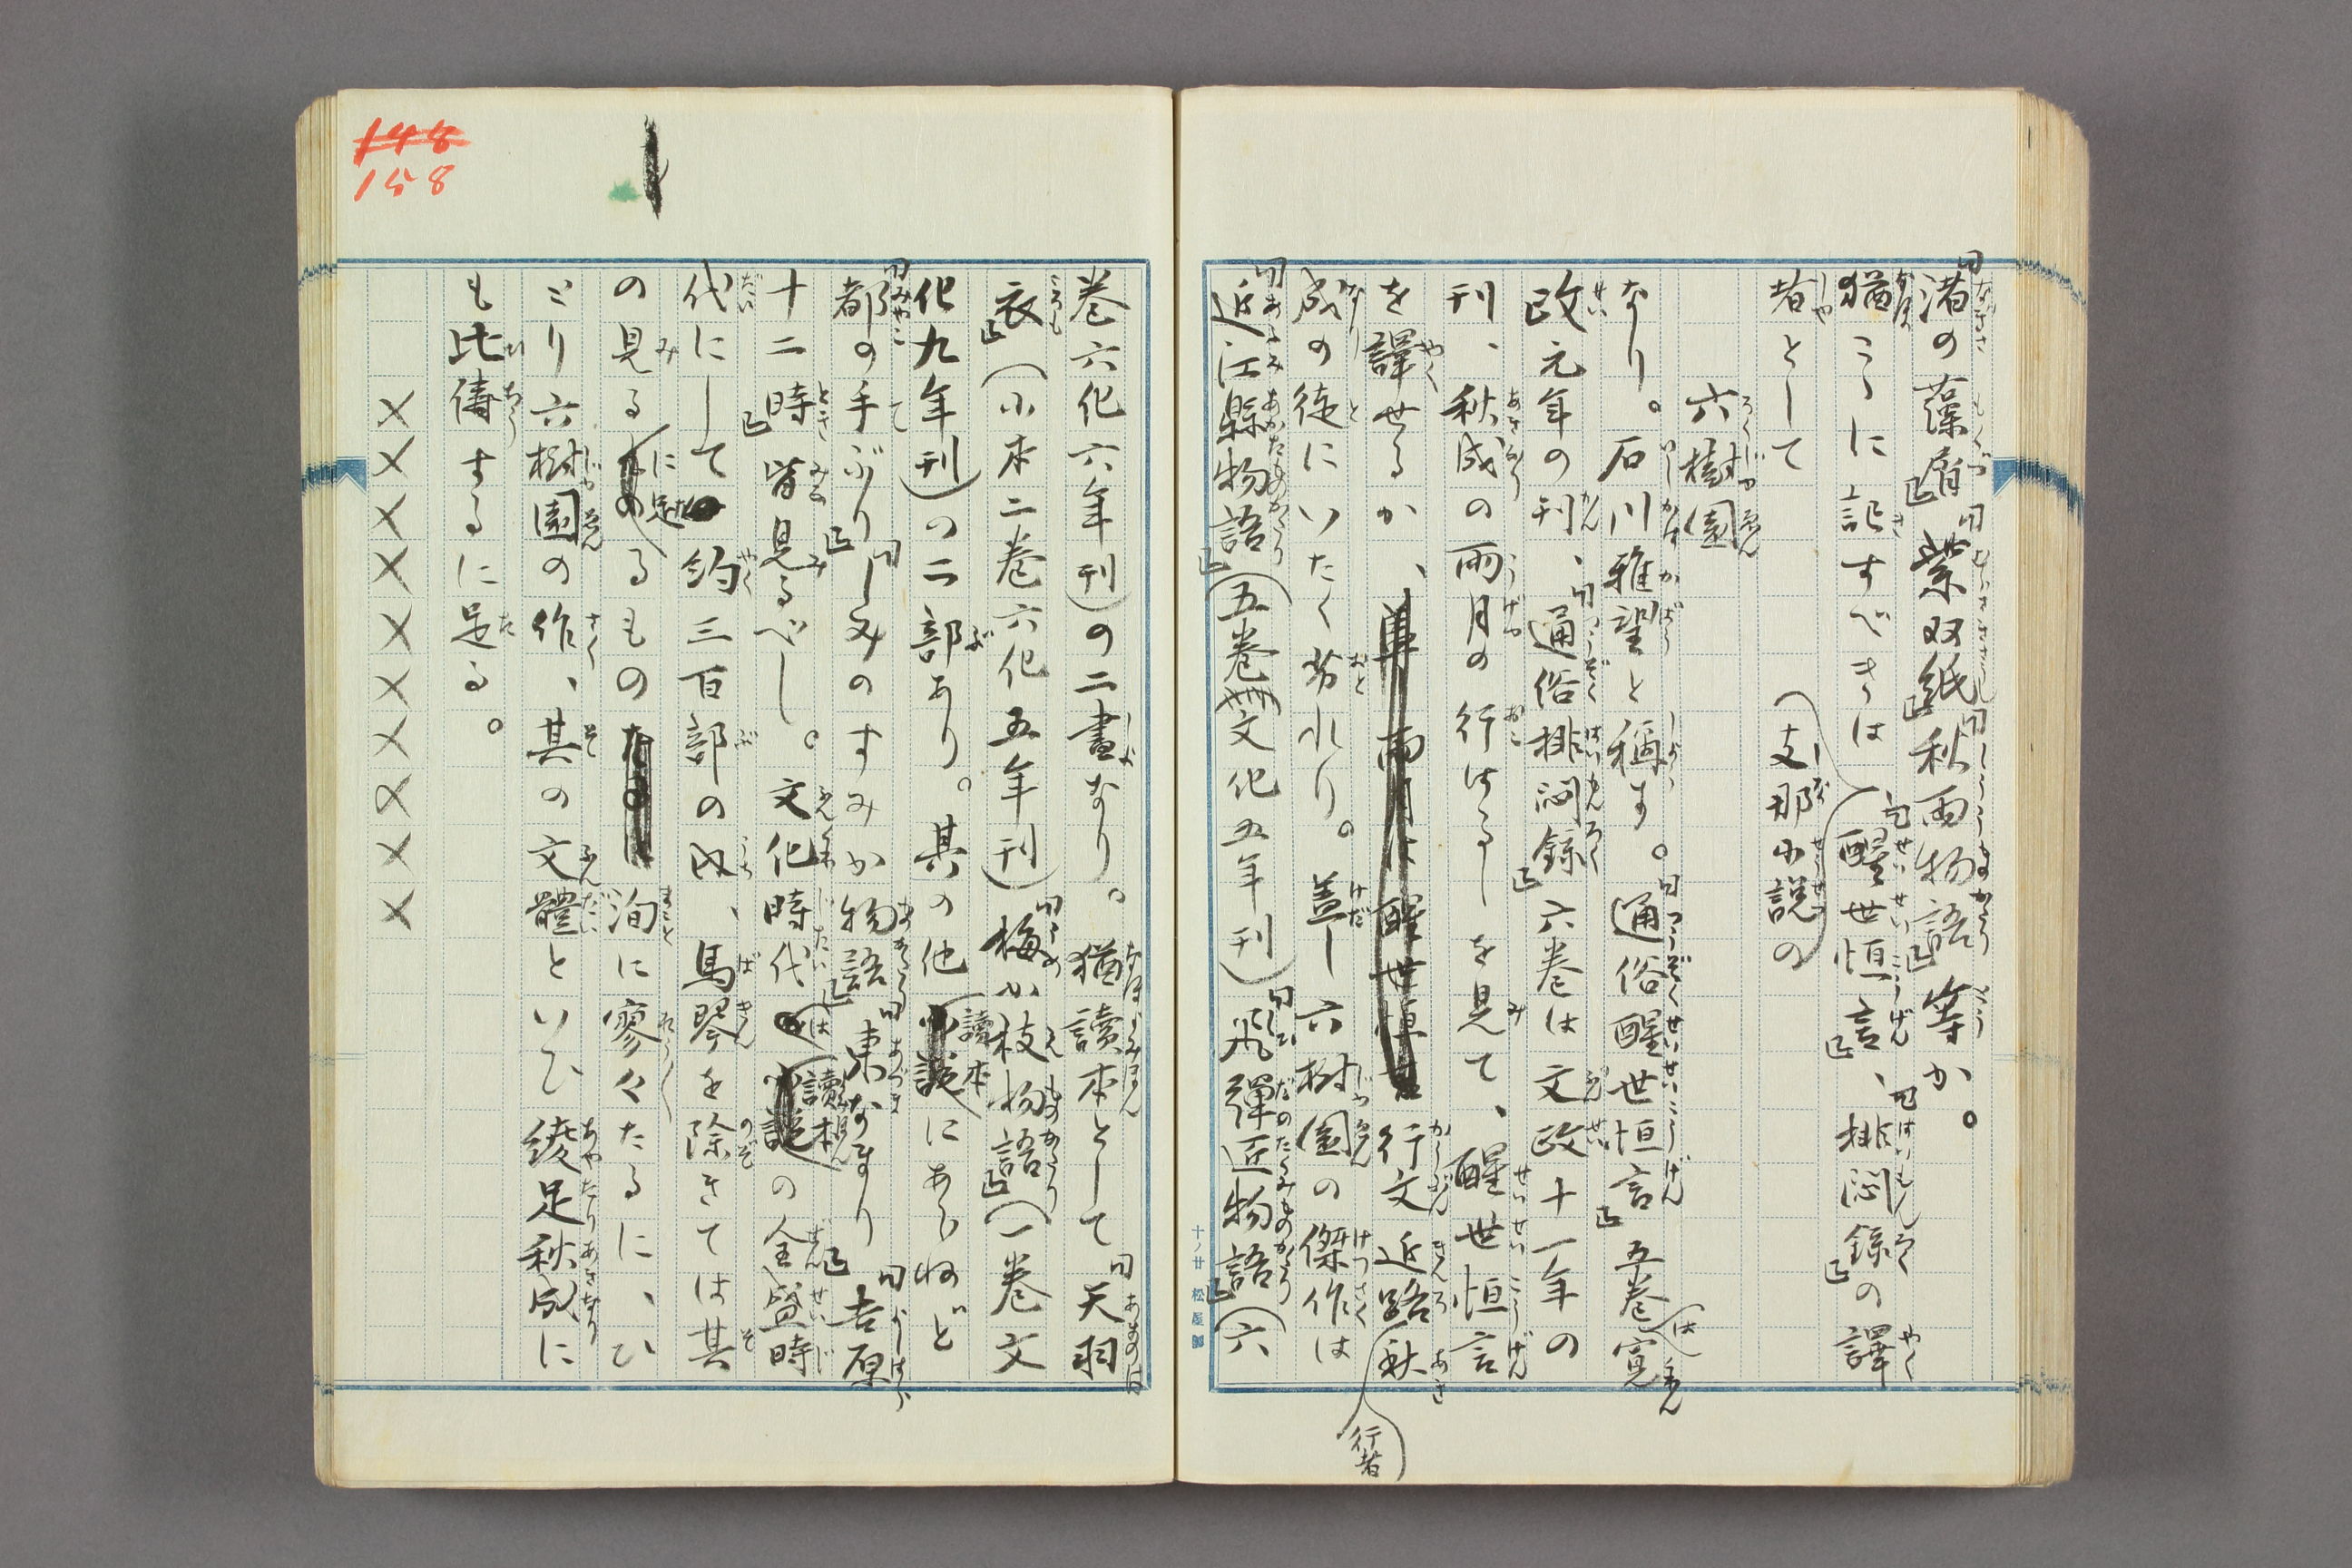 渚の藻屑』『紫双紙』『秋雨物語』等か。
猶こゝに記すべきは『醒世恒言』、『排悶録』の譯
者として
(支那小説の
六樹園
なり。石川雅望と稱す。『通俗醒世恒言』五巻は寛
政元年の刊、『通俗排悶録』六巻は文政十一年の
刊、秋成の雨月の行はるゝを見て、醒世恒言
を譯せるか、行文近路秋
行者
成の徒にいたく劣れり。蓋し六樹園の傑作は
『近江縣物語』(五巻文化五年刊)『飛彈匠物語』(六
十ノ廿 松屋製
148
158
巻六化六年刊)の二書なり。猶讀本として『天羽
衣』(小本二巻六化五年刊)『梅か枝物語』(一巻文
化九年刊)の二部あり。其の他讀本にあらねど
『都の手ぶり』『しみのすみか物語』『東なまり』『吉原
十二時』皆見るべし。文化時代は讀本の全盛時
代にして約三百部の内、馬琴を除きては其
の見るに足るもの洵に寥々たるに、ひ
とり六樹園の作、其の文體といひ綾足秋成に
も比儔するに足る。
××××××××××